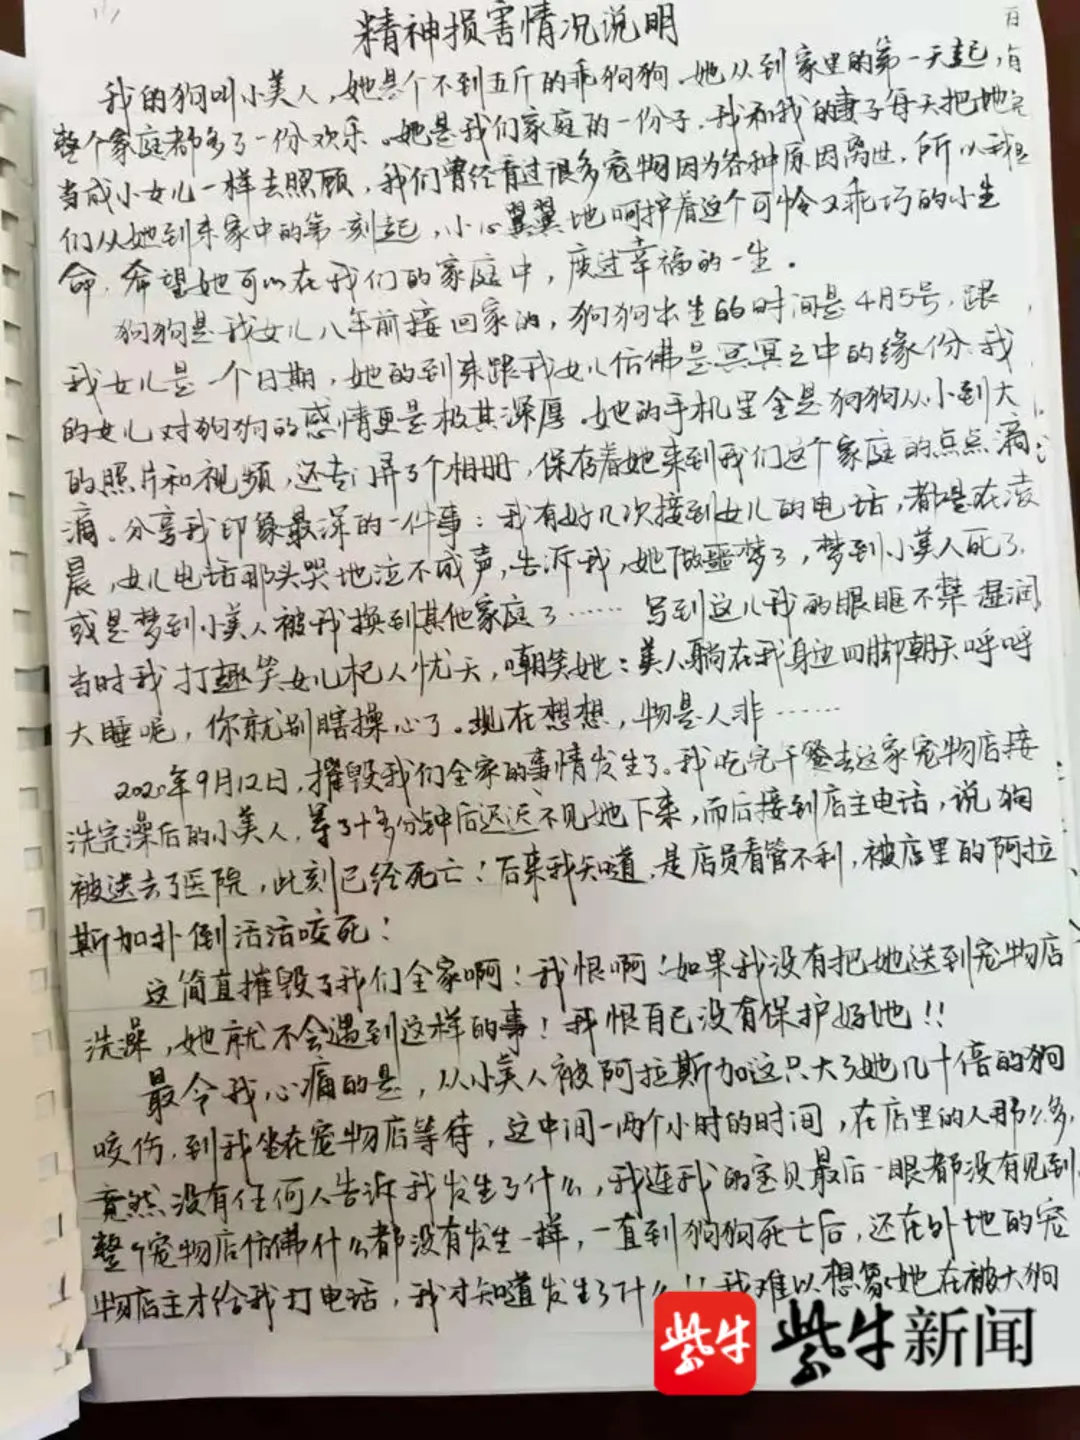 精神损害情况说明
我的狗叫小美人，她是个不到五斤的乖狗狗。她从到家里的第一天起，
整个家庭都多了一份欢乐。她是我们家庭的一份子，我和我的妻子每天把她
当成小女儿一样去照顾，我们曾经看过很多宠物因为各种原因离世，所以我
们从她到来家中的第一刻起，小心翼翼地呵护着这个可怜又乖巧的小生
命，希望她可以在我们的家庭中，度过幸福的一生。
狗狗是我女儿八年前接回家的，狗狗出生的时间是4月5号，跟
我女儿是一个日期，她的到来跟我女儿仿佛是冥冥之中的缘份。我
的女儿对狗狗的感情更是极其深厚。她的手机里全是狗狗从小到大
的照片和视频，还专门弄了个相册，保存着她来到我们这个家庭的点点滴
滴。分享我印象最深的一件事：我有好几次接到女儿的电话，都是在凌
晨，女儿电话那头哭地泣不成声，告诉我，她做噩梦了，梦到小美人死了，
或是梦到小美人被我换到其他家庭了……写到这儿我的眼眶不禁湿润
当时我打趣笑女儿杞人忧天，嘲笑她：美人躺在我身边四脚朝天呼呼
大睡呢，你就别瞎操心了。现在想想，物是人非……
2020年9月12日，摧毁我们全家的事情发生了。我吃完午餐去这家宠物店接
洗完澡后的小美人，等了十多分钟后迟迟不见她下来，而后接到店主电话，说狗
被送去了医院，此刻已经死亡！后来我知道，是店员看管不利，被店里的阿拉
斯加扑倒活活咬死！
这简直摧毁了我们全家啊！我恨啊！如果我没有把她送到宠物店
洗澡，她就不会遇到这样的事！我恨自己没有保护好她！！
最令我心痛的是，从小美人被阿拉斯加这只大了她几十倍的狗
咬伤，到我坐在宠物店等待，这中间一两个小时的时间，在店里的人那么多，
竟然没有任何人告诉我发生了什么，我连我的宝贝最后一眼都没有见到
整个宠物店仿佛什么都没有发生一样，一直到狗狗死亡后，还在外地的宠
物店主才给我打电话，我才知道发生了什么！！我难以想象她在被大狗
紫牛 紫牛新闻